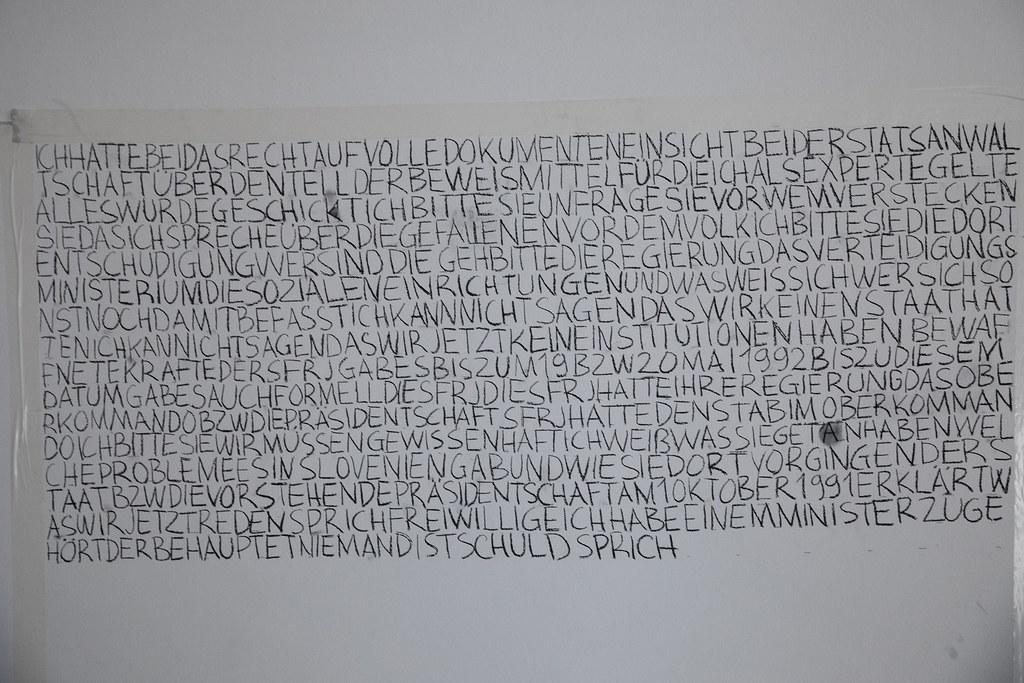 ICHHATTEBEIDASRECHTAUFVOLLEDOKUMENTENEINSICHTBEIDERSTATSANWAL
TSCHAFTÜBERDENTEILDERBEWEISMITTELFÜRDIEICHALSEXPERTEGELTE
ALLESWURDEGESCHICKTICHBITTESIEUNFRAGESIEVORWEMVERSTECKEN
SIEDASICHSPRECHEÜBERDIEGEFALLENENVORDEMVOLKICHBITTESIEDIEDORT
ENTSCHUDIGUNGWERSINDDIEGEHBITTEDIEREGIERUNGDASVERTEIDIGUNGS
MINISTERIUMDIESOZIALENEINRICHTUNGENUNDWASWEISSICHWERSICHSO
NSTNOCHDAMITBEFASSTICHKANNNICHTSAGENDASWIRKEINENSTAATHAT
TENICHKANNICHTSAGENDASWIRJETZTKEINEINSTITUTIONENHABENBEWAF
FNETEKRAFTEDERSFRJGABESBISZUM19BZW20MAI1992BISZUDIESEM
DATUMGABESAUCHFORMELLDIESFRJDIESFRJHATTEIHREREGIERUNGDASOBE
RKOMMANDOBZWDIEPRÄSIDENTSCHAFTSFRJHATTEDENSTABIMOBERKOMMAN
DOICHBITTESIEWIRMÜSSENGEWISSENHAFTICHWEIßWASSIEGETANHABENWEL
CHEPROBLEMEESINSLOVENIENGABUNDWIESIEDORTVORGINGENDERS
TAATBZWDIEVORSTEHENDEPRÄSIDENTSCHAFTAM1OKTOBER1991ERKLÄRTW
ASWIRJETZTREDENSPRICHFREIWILLIGEICHHABEEINEMMINISTERZUGE
HÖRTDERBEHAUPTETNIEMANDISTSCHULDSPRICH